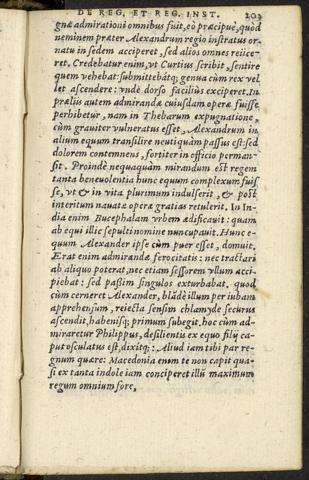 DE REG. ET REG. INST. 203
gnæ admirationi omnibus fuit, eò præcipuè, quòd
neminem præter Alexandrum regio instratus or-
natu in sedem acciperet, sed alios omnes reiice-
ret. Credebatur enim, vt Curtius scribit, sentire
quem vehebat: submittebátq; genua cùm rex vel
let ascendere: vnde dorso faciliùs exciperet. In
præliis autem admirandæ cuiusdam operæ fuisse
perhibetur, nam in Thebarum expugnatione,
cùm grauiter vulneratus esset, Alexandrum in
alium equum transilire neutiquàm passus est: sed
dolorem contemnens, fortiter in officio perman-
sit. Proindè nequaquàm mirandum est regem
tanta beneuolentia hunc equum complexum fuis
se, vt & in vita plurimum indulserit, & post
interitum nauatæ operæ gratias retulerit. In In-
dia enim Bucephalam vrbem ædificauit: quam
ab equi illic sepulti nomine nuncupauit. Hunc e-
quum Alexander ipse cùm puer esset, domuit.
Erat enim admirandæ ferocitatis: nec tractari
ab aliquo poterat, nec etiam sessorem vllum acci
piebat: sed passim singulos exturbabat. quod
cùm cerneret Alexander, blādè illum per iubam
apprehensum, reiecta sensim chlamyde securus
ascendit, habenisq; primum subegit, hoc cùm ad-
miraretur Philippus, desilientis ex equo filij ca-
put osculatus est, dixitq;: Aliud iam tibi par re-
gnum quære: Macedonia enim te non capit qua-
si ex tanta indole iam conciperet illū maximum
regum omnium fore.